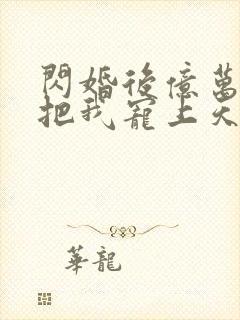 閃婚後億萬
把我寵上天
華龍